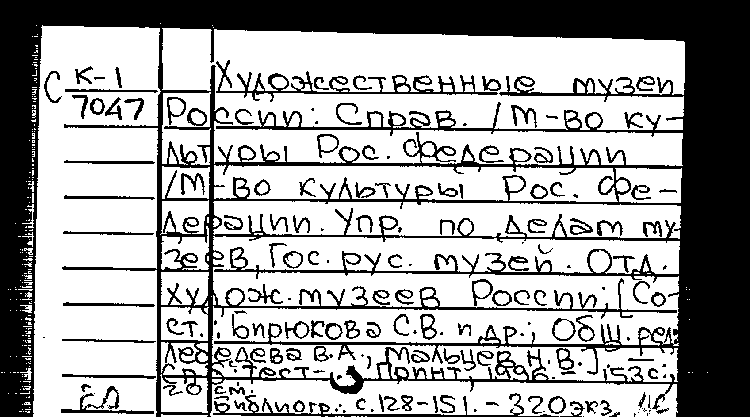 С К-1
7047
Художественные музеи
России: Справ. /М-во ку-
льтуры Рос. Федерации
/М-во культуры Рос. Фе-
дерации. Упр. по делам му-
зеев, Гос. рус. музей. Отд.
худож. музеев России; [Со-
ст.: Бирюкова С.В. и др.; Общ. ред.
Лебедева В.А., Мальцев Н.В.]
Принт, 1996. - 153с.;
20 см.
Библиогр.: с.128-151. - 320экз.